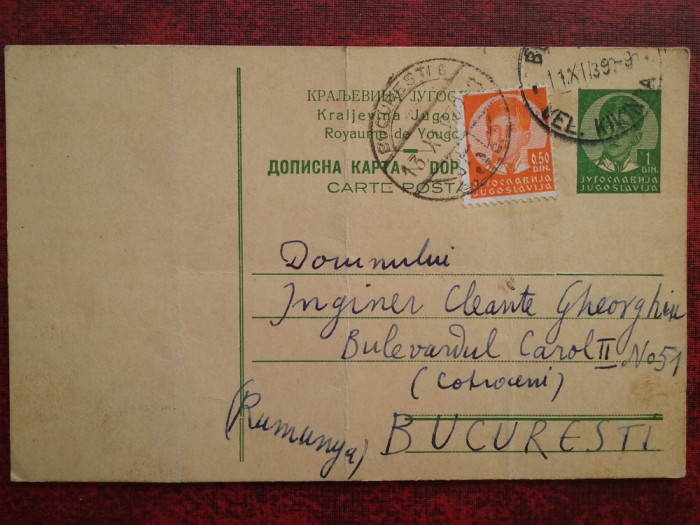 КРАЉЕВИНА ЈУГОС
Kraljevina Jugos
Royaume de Youg
ДОПИСНА КАРТА - DOP
CARTE POSTA
BUCURESTI 6
13. X
0.50 DIN.
ЈУГОСЛАВИЈА
JUGOSLAVIJA
VEL. KIKINDA
1 DIN.
ЈУГОСЛАВИЈА
JUGOSLAVIJA
Domnului
Inginer Cleante Gheorghiu
Bulevardul Carol II No 51
(Cotroceni)
(Rumunya)
BUCURESTI